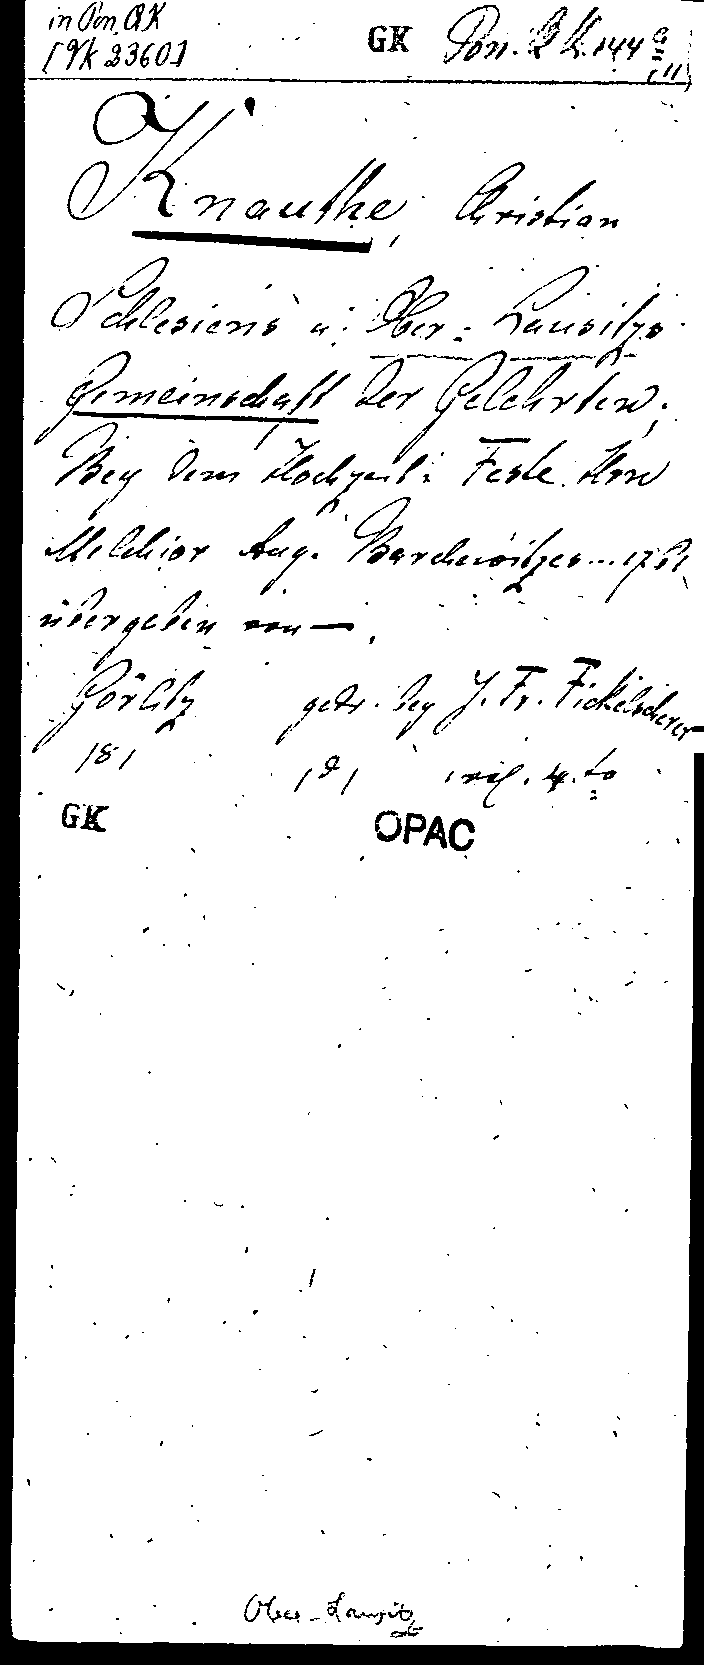 in Pon. QK
[Yk 2360]
GK Pon. QK. 144 a
Knauthe, Christian
Schlesiens u. Ober-Lausitzs
Gemeinschaft der Gelehrten;
Bey dem Hochzeit- Feste Hrn
Melchior Aug. Barchewitzes...
übergeben von —.
Görlitz gedr. bey J. Fr. Fickelscherer
GK OPAC
Ober-Lausitz